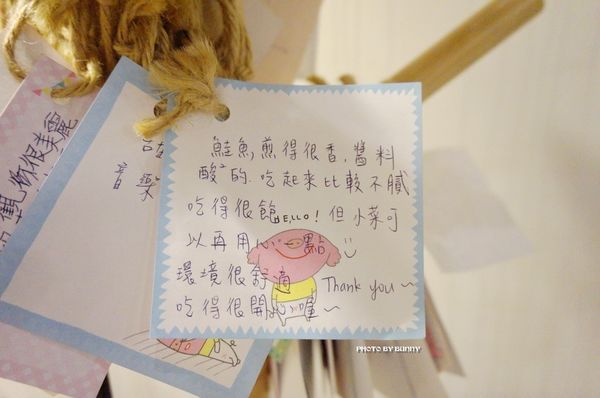 鮭魚,煎得很香,醬料
酸酸的..吃起來比較不膩
吃得很飽!但小菜可
HELLO
以再用心一點
環境很舒適 Thank you~
吃得很開心喔~
音樂
觀 你很美麗
PHOTO BY BUNNY